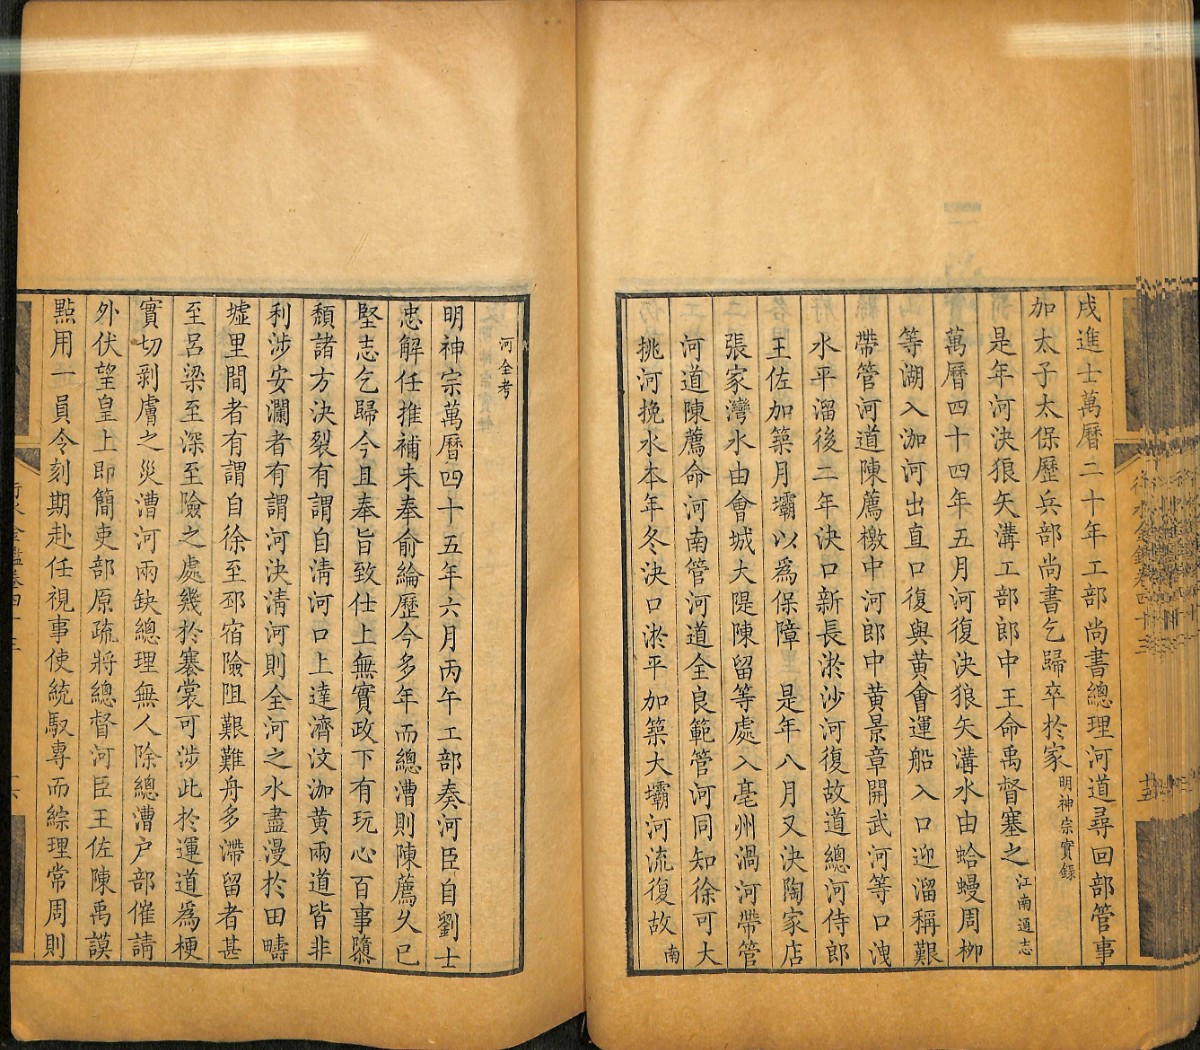 戌進士萬曆二十年工部尚書總理河道尋回部管事
加太子太保歷兵部尚書乞歸卒於家明神宗實錄
是年河決狼矢溝工部郎中王命禹督塞之江南通志
萬曆四十四年五月河復決狼矢溝水由蛤蟃周柳
等湖入泇河出直口復與黃會運船入口迎溜稱艱
帶管河道陳薦檄中河郎中黃景章開武河等口洩
水平溜後二年決口新長淤沙河復故道總河侍郎
王佐加築月壩以爲保障 是年八月又決陶家店
張家灣水由會城大隄陳留等處入亳州渦河帶管
河道陳薦命河南管河道全良範管河同知徐可大
挑河挽水本年冬決口淤平加築大壩河流復故南
河全考
明神宗萬曆四十五年六月丙午工部奏河臣自劉士
忠解任推補未奉俞綸歷今多年而總漕則陳薦久已
堅志乞歸今且奉旨致仕上無實政下有玩心百事隳
頽諸方決裂有謂自淸河口上達濟汶泇黃兩道皆非
利涉安瀾者有謂河決淸河則全河之水盡漫於田疇
墟里間者有謂自徐至邳宿險阻艱難舟多滯留者甚
至呂梁至深至險之處幾於褰裳可涉此於運道爲梗
實切剥膚之災漕河兩缺總理無人除總漕户部催請
外伏望皇上即簡吏部原疏將總督河臣王佐陳禹謨
㸃用一員令刻期赴任視事使統馭專而綜理常周則